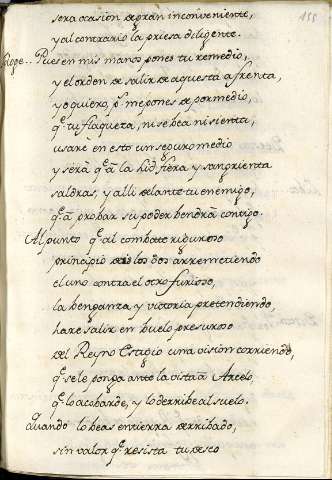 155
sera ocasion de gran inconveniente,
y al contrario la priesa diligente.
Pues en mis manos pones tu remedio,
y el orden de salir de aquesta afrenta,
y o quiero, pˢ me pones de por medio,
qᵉ tu flaqueza, ni se bea ni sienta,
usarè en esto un seguro medio
y serà qᵉ à la lid fiera y sangrienta
saldras, y alli delante tu enemigo,
qᵉ à probar su poder bendrà contigo.
Al punto qᵉ al combate riguroso
principio den los dos arremetiendo
el uno contra el otro furioso,
la benganza y victoria pretendiendo,
harè salir en buelo presuroso
del Reyno Estigio una vision corriendo,
qᵉ se le ponga ante la vista à Arcelo,
qᵉ lo acobarde, y lo derribe al suelo.
Quando lo beas en tierra derribado,
sin valor qᵉ resista tu deseo